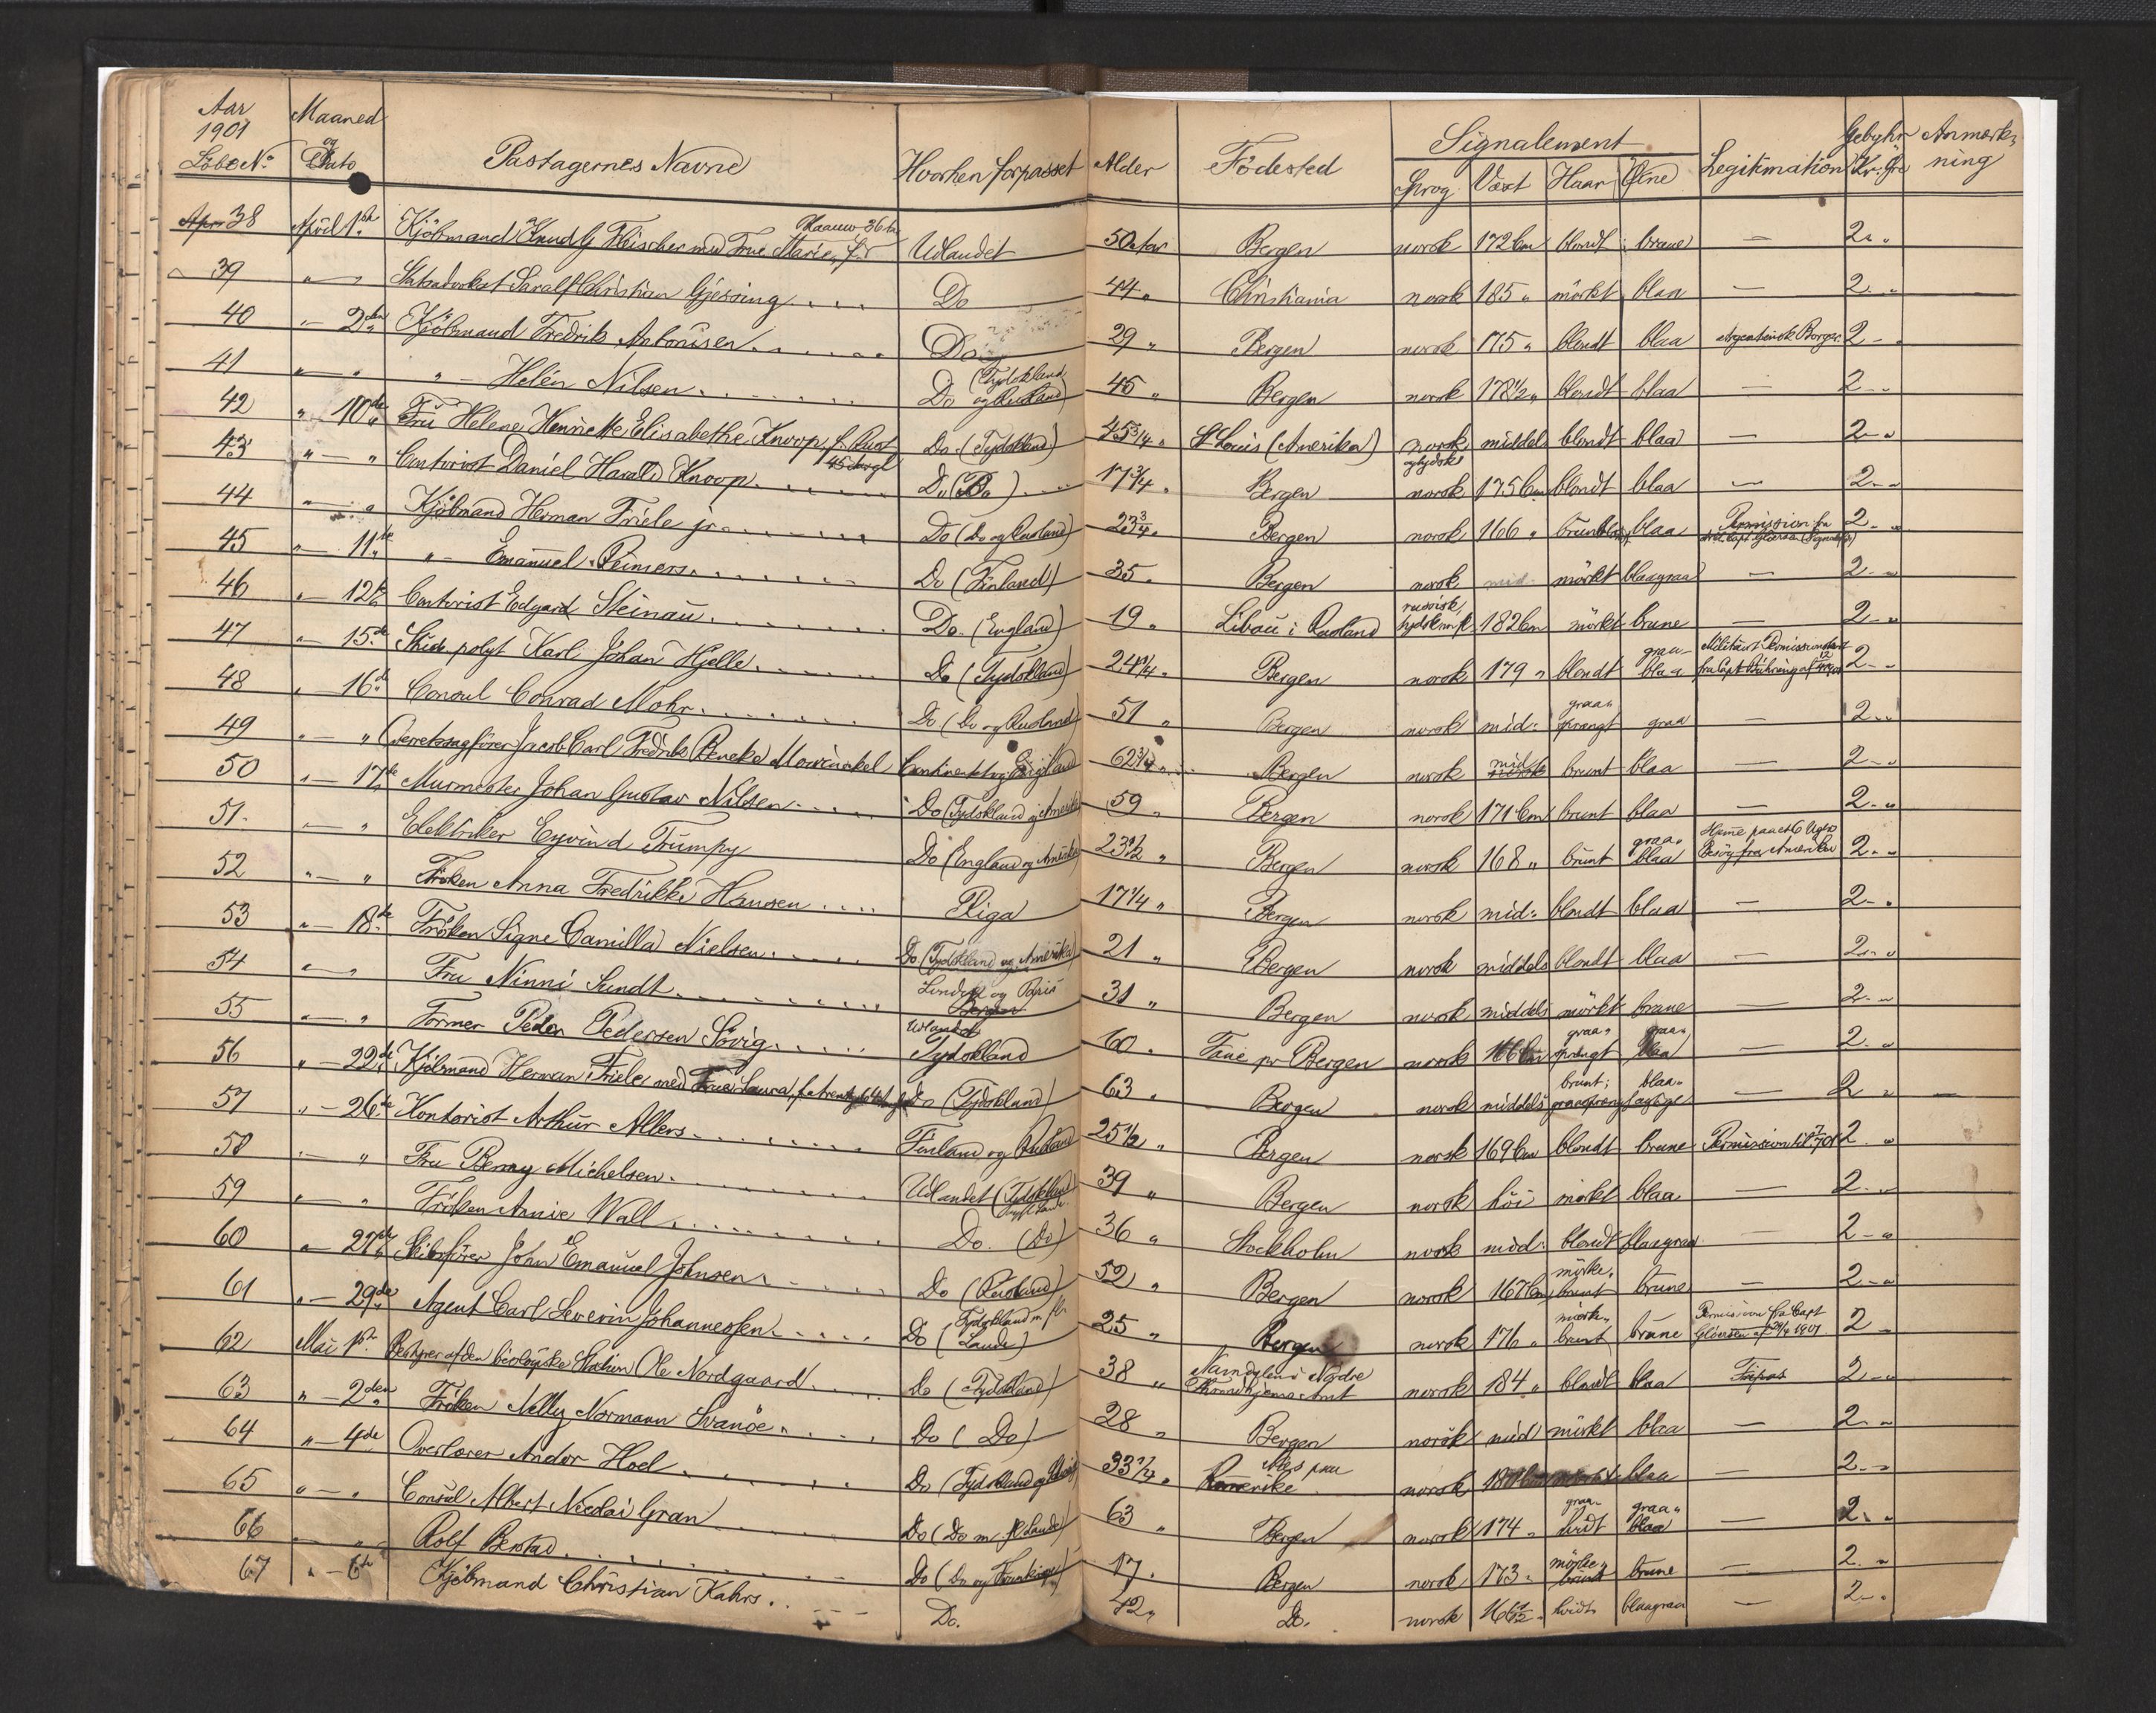 Aar 1901 Löbe No. Maaned og Dato Passagernes Navne Hvorhen forpasset Alder Födested Signalement Sprog Væxt Haar Öine Legitimation Gebyhr Kr. Öre Anmærkning
38 April 1ste Kjöbmand Knud G Fleischer med Frue Marie, f. 36 Udlandet 50 Aar Bergen norsk 172 Cm blondt brune — 2 „
39 „ — Christian Gjessing Do 44 „ Christiania norsk 185 „ mörkt blaa — 2 „
40 „ — 2den Kjöbmand Fredrik Antonisen Do 29 „ Bergen norsk 175 „ blondt blaa Argentinsk Borger 2 -
41 „ — „ „ — Helen Nilsen Do (Tydskland og Rusland) 45 „ Bergen norsk 178 1/2 „ blondt blaa — 2 - „
42 „ — 10de Fru Helene Henriette Elisabethe Knoop, f. Rust Do (Tydskland) 45 3/4 „ St Louis (Amerika) norsk og tydsk middels blondt blaa — 2 - „
43 „ — „ Contorist Daniel Harald Knoop Do (Do) 17 3/4 „ Bergen norsk 175 Cm blondt blaa — 2 - „
44 „ — „ Kjöbmand Herman Friele jr Do (Do og Rusland) 23 3/4 „ Bergen norsk 166 „ blaa Permission fra 2 - „
45 „ — 11te „ — Emanuel Reimers Do (Finland) 35 „ Bergen norsk mid. mörkt blaagraa — 2 - „
46 „ — 12te Contorist Edgard Steinau Do. (England) 19 „ Libau i Rusland russisk, tydsk m fl. 182 Cm mörkt brune — 2 - „
47 „ — 15de polyt Karl Johan Hjelle Do (Tydskland) 24 1/4 „ Bergen norsk 179 „ blondt graa-blaa Militært fra Capt 2 - „
48 „ — 16de Consul Conrad Mohr Do (Do og Rusland) 51 „ Bergen norsk mid: graasprængt graa — 2 - „
49 „ — „ Overretssagförer Jacob Carl Fredrik Reneke Mowinckel Continentet og England 62 3/4 „ Bergen norsk mid brunt blaa — 2 - „
50 „ — 17de Murmester Johan Gustav Nilsen Do (Tydskland og Amerika) 59 „ Bergen norsk 171 Cm brunt blaa — 2 - „
51 „ — „ Elektriker Eyvind Trumpy Do (England og Amerika) 23 1/2 „ Bergen norsk 168 „ brunt graa-blaa Hjeme paa et 6 Ugers Besög fra Amerika 2 - „
52 „ — „ Fröken Anna Fredrikke Hansen Riga 17 1/4 „ Bergen norsk mid: blondt blaa — 2 - „
53 „ — 18de Fröken Signe Camilla Nielsen Do (Tydskland og Amerika) 21 „ Bergen norsk middels blondt blaa — 2 - „
54 „ — „ Fru Ninni Sundt London og Paris Bergen 31 „ Bergen norsk middels mörkt brune — 2 - „
55 „ — „ Former Peder Pedersen Sörig Udlandet Tydskland 60 „ Fane pr Bergen norsk 166 Cm graasprængt graa-blaa — 2 - „
56 „ — 22de Kjöbmand Herman Friele med Frue Laura, f. Do (Tydskland) 63 „ Bergen norsk middels brunt; graasprængt blaa- 2 „ —
57 „ — 26de Kontorist Arthur Allers Finland og Rusland 25 1/2 „ Bergen norsk 169 Cm blondt brune Permission til 2 - „
58 „ — „ Fru Benny Michelsen Udlandet (Tydskland m fl Lande) 39 „ Bergen norsk höi mörkt blaa — 2 - „
59 „ — „ Fröken Annie Wall Do. (Do) 36 „ Stockholm norsk mid: blondt blaagraa — 2 - „
60 „ — 27de Skibsförer John Emanuel Johnsen Do (Rusland) 52 „ Bergen norsk 167 Cm mörkebrunt brune — 2 - „
61 „ — 29de Agent Carl Severin Johannessen Do (Tydskland m fl. Lande) 25 „ Bergen norsk 176 „ mörkebrunt brune Permission fra Capt 29/4 1901 2 -
62 Mai 1ste Bestyrer af den biologiske Station Ole Nordgaard Do (Tydskland) 38 „ Namdalen i Nordre Throndhjems Amt norsk 184 „ blondt blaa Fripas 2 - „
63 „ — 2den Fröken Nelly Normann Svanöe Do (Do) 28 „ Bergen norsk mid mörkt blaa — 2 - „
64 „ — 4de Overlærer Andor Hoel Do (Tydskland og) 33 1/4 „ Næs paa Romerike norsk 180 Cm blaa — 2 - „
65 „ — „ Consul Albert Nicolai Gran Do (Do m. fl Lande) 63 „ Bergen norsk 174 „ graa- hvidt graa-blaa — 2 - „
66 „ — „ Rolf Berstad Do (Do og Frankrige) 17 „ Bergen norsk 173 „ mörkebrunt brune — 2 - „
67 „ — 6te Kjöbmand Christian Kahrs Do. 42 „ Do. norsk 166 1/2 „ hvidt blaagraa — 2 - „